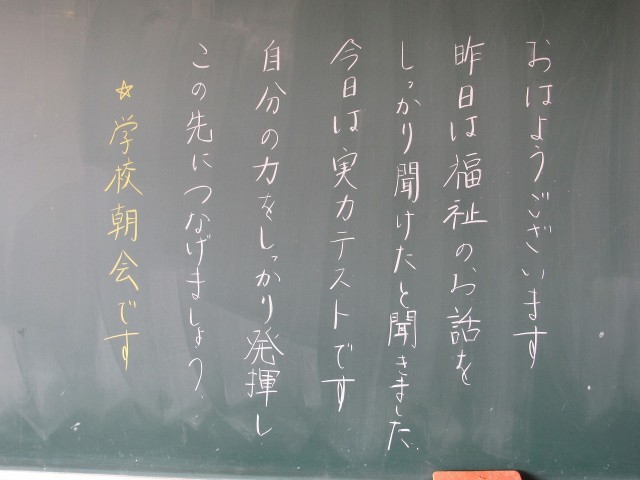 おはようございます
昨日は福祉のお話を
しっかり聞けたと聞きました。
今日は実力テストです
自分の力をしっかり発揮し
この先につなげましょう。
☆学校朝会です